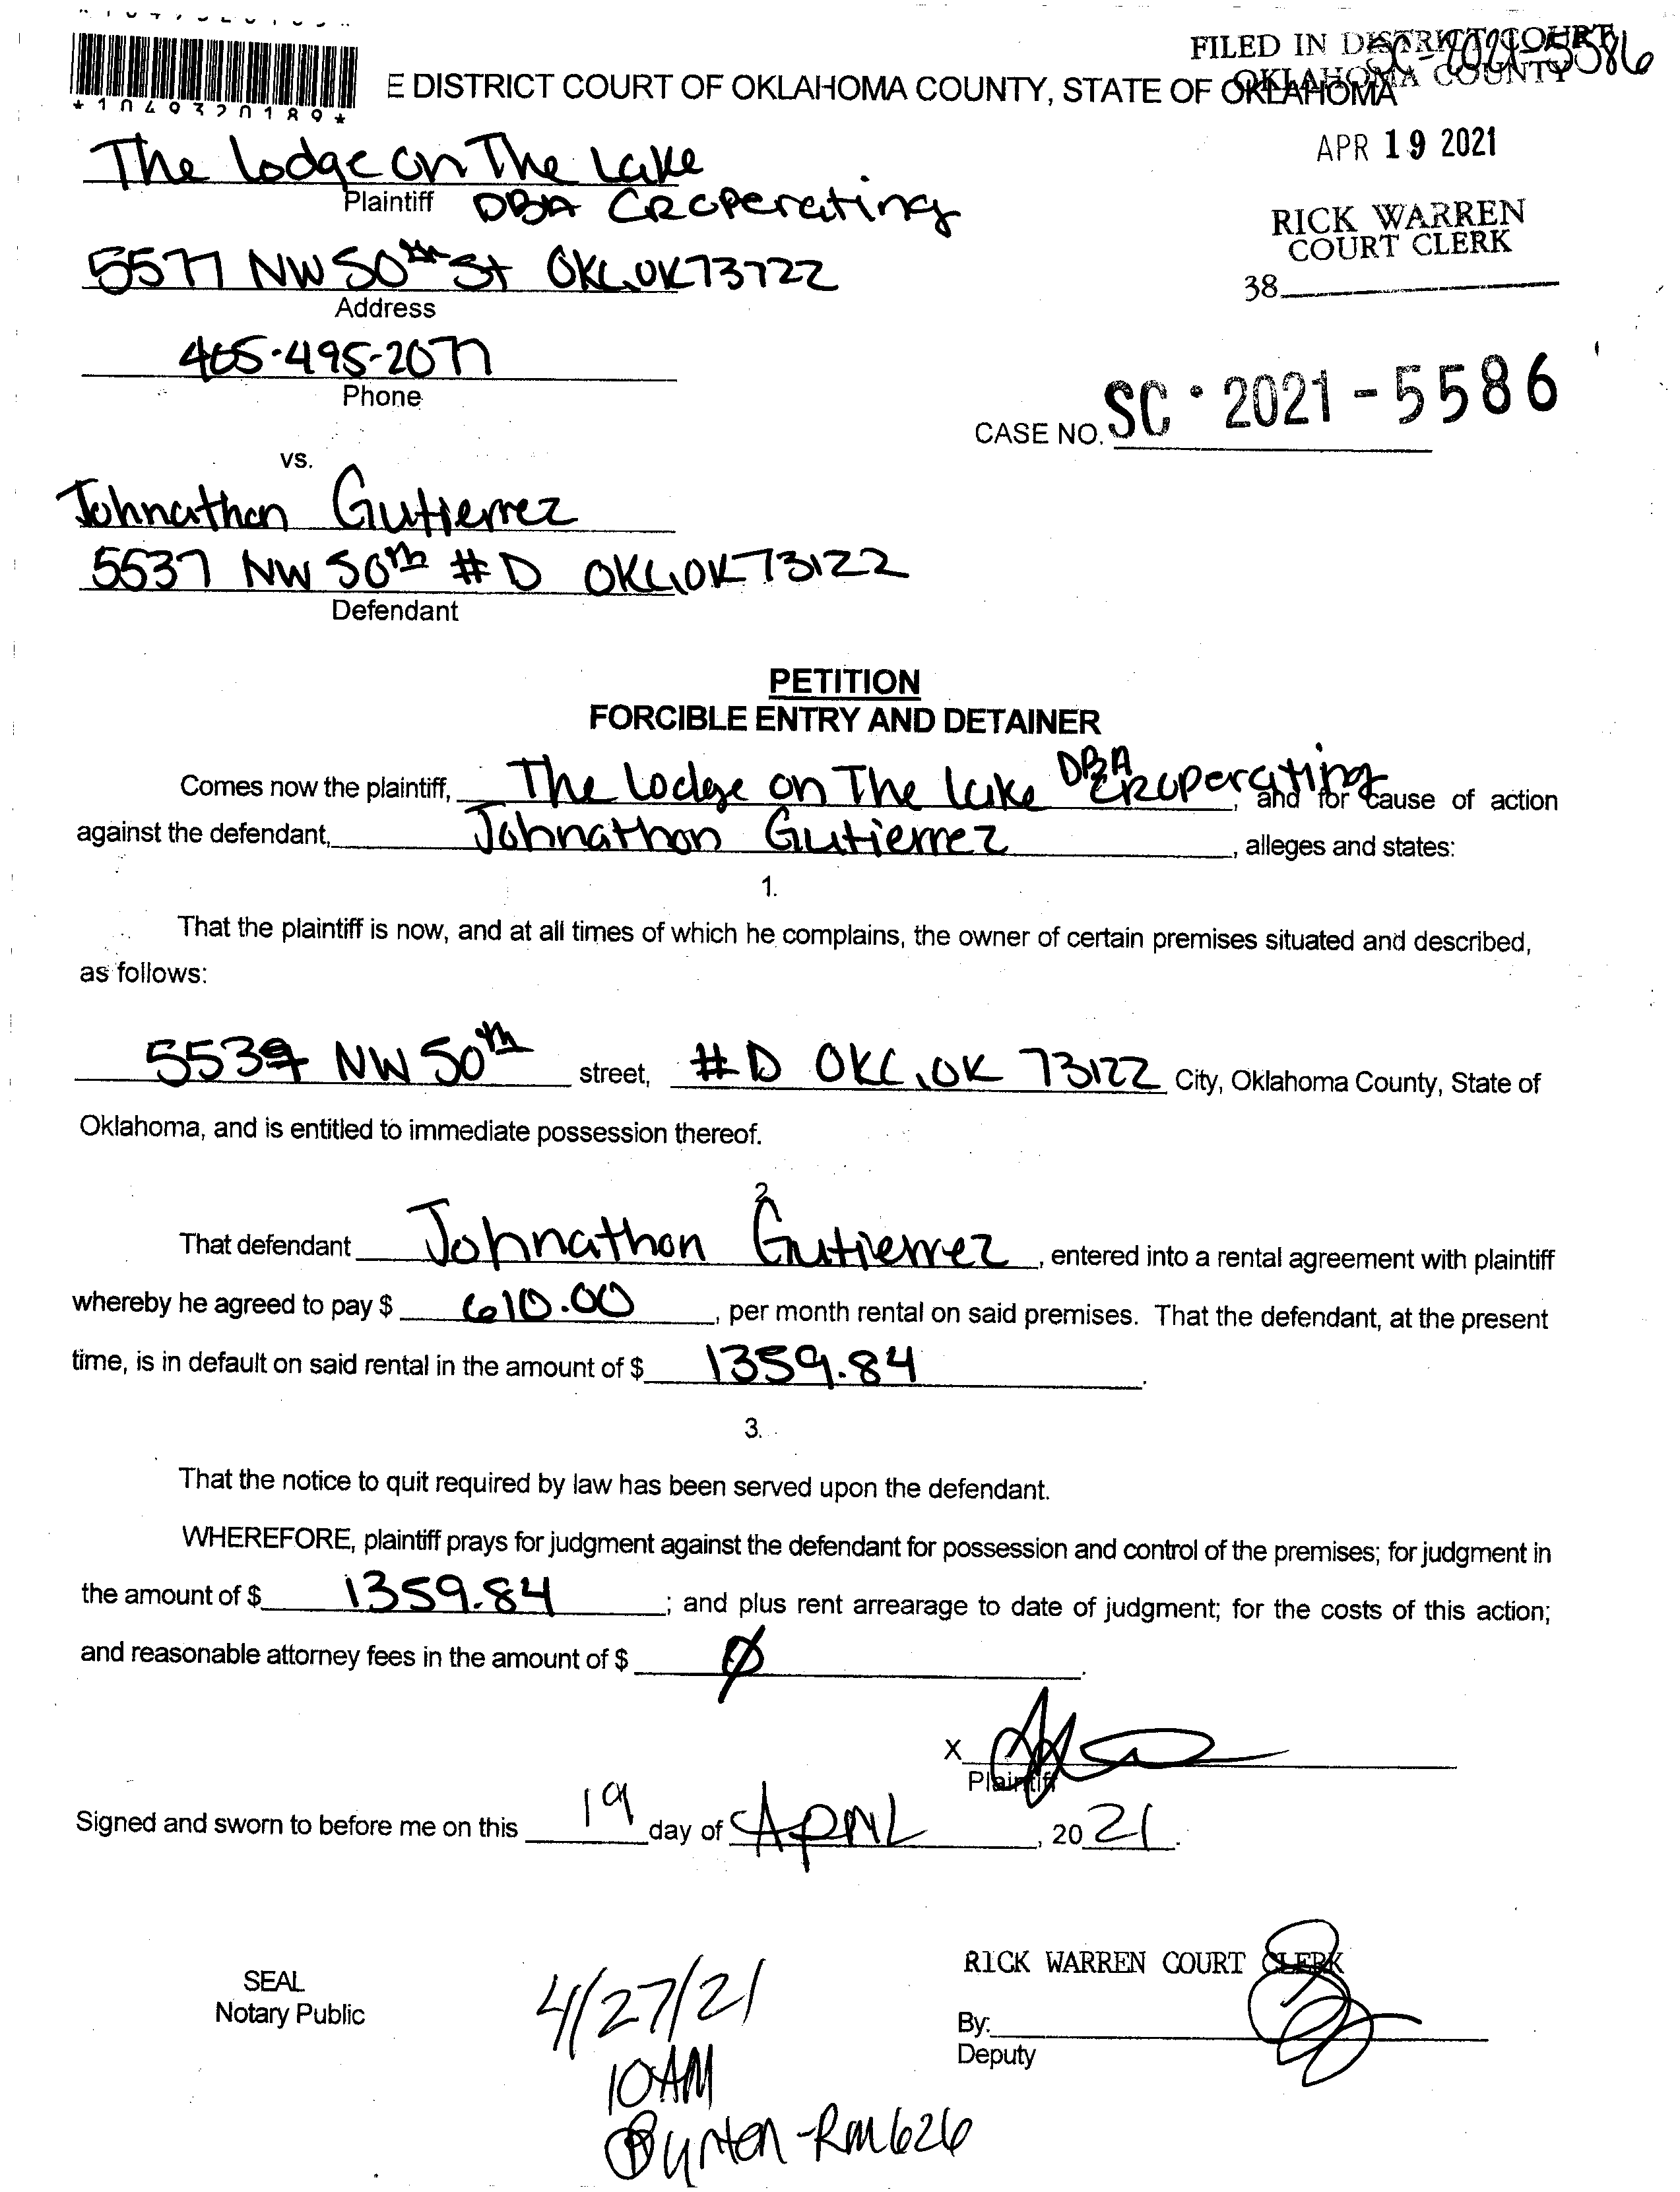 *1049320189*
FILED IN DISTRICT COURT
OKLAHOMA COUNTY
SC-2021-5586
E DISTRICT COURT OF OKLAHOMA COUNTY, STATE OF OKLAHOMA
APR 19 2021
RICK WARREN
COURT CLERK
38
The Lodge on The Lake
Plaintiff DBA CROperating
5577 NW 50th St OKC, OK 73122
Address
405-495-2077
Phone
CASE NO. SC • 2021 - 5586
vs.
Johnathon Gutierrez
5537 NW 50th #D OKC, OK 73122
Defendant
PETITION
FORCIBLE ENTRY AND DETAINER
Comes now the plaintiff, The Lodge on The Lake DBA CROperating, and for cause of action
against the defendant, Johnathon Gutierrez, alleges and states:
1.
That the plaintiff is now, and at all times of which he complains, the owner of certain premises situated and described,
as follows:
5537 NW 50th street, #D OKC, OK 73122 City, Oklahoma County, State of
Oklahoma, and is entitled to immediate possession thereof.
2.
That defendant Johnathon Gutierrez, entered into a rental agreement with plaintiff
whereby he agreed to pay $ 610.00, per month rental on said premises. That the defendant, at the present
time, is in default on said rental in the amount of $ 1359.84.
3.
That the notice to quit required by law has been served upon the defendant.
WHEREFORE, plaintiff prays for judgment against the defendant for possession and control of the premises; for judgment in
the amount of $ 1359.84; and plus rent arrearage to date of judgment; for the costs of this action;
and reasonable attorney fees in the amount of $ Ø.
X
Plaintiff
Signed and sworn to before me on this 19 day of April, 2021.
RICK WARREN COURT CLERK
SEAL
Notary Public
By:
Deputy
4/27/21
10AM
Burton-Rm 626